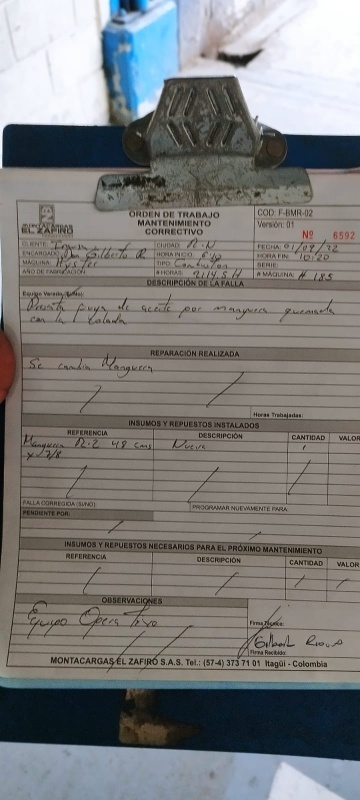 MONTACARGAS
EL ZAFIRO
ORDEN DE TRABAJO
MANTENIMIENTO
CORRECTIVO
COD: F-BMR-02
Versión: 01
Nº 6592
CLIENTE:
CIUDAD: R-N
FECHA:
ENCARGADO: Gilberto R
HORA INICIO:
HORA FIN: 10:20
MAQUINA: Hyster
TIPO: Combustion
SERIE:
AÑO DE FABRICACIÓN:
# HORAS:
# MAQUINA: # 185
DESCRIPCIÓN DE LA FALLA
Equipo Varado (Si/No):
Presenta fuga de aceite por manguera quemada
con la tolada
REPARACIÓN REALIZADA
Se cambia Manguera
Horas Trabajadas:
INSUMOS Y REPUESTOS INSTALADOS
REFERENCIA DESCRIPCIÓN CANTIDAD VALOR
Manguera R-2 48 cms Nueva 1
x 3/8
FALLA CORREGIDA (SI/NO) PROGRAMAR NUEVAMENTE PARA:
PENDIENTE POR:
INSUMOS Y REPUESTOS NECESARIOS PARA EL PRÓXIMO MANTENIMIENTO
REFERENCIA DESCRIPCIÓN CANTIDAD VALOR
OBSERVACIONES
Equipo Operativo
Firma Técnico:
Firma Recibido:
MONTACARGAS EL ZAFIRO S.A.S. Tel.: (57-4) 373 71 01 Itagüí - Colombia